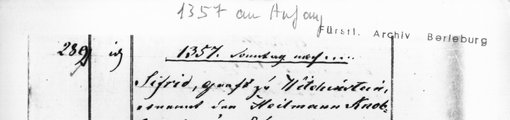 1357 am Anfang
Fürstl. Archiv Berleburg
289
1357. Sonntag nach ....
Sifrid, graff zů Witchinstein,
ernennt den Heilmann Knob-